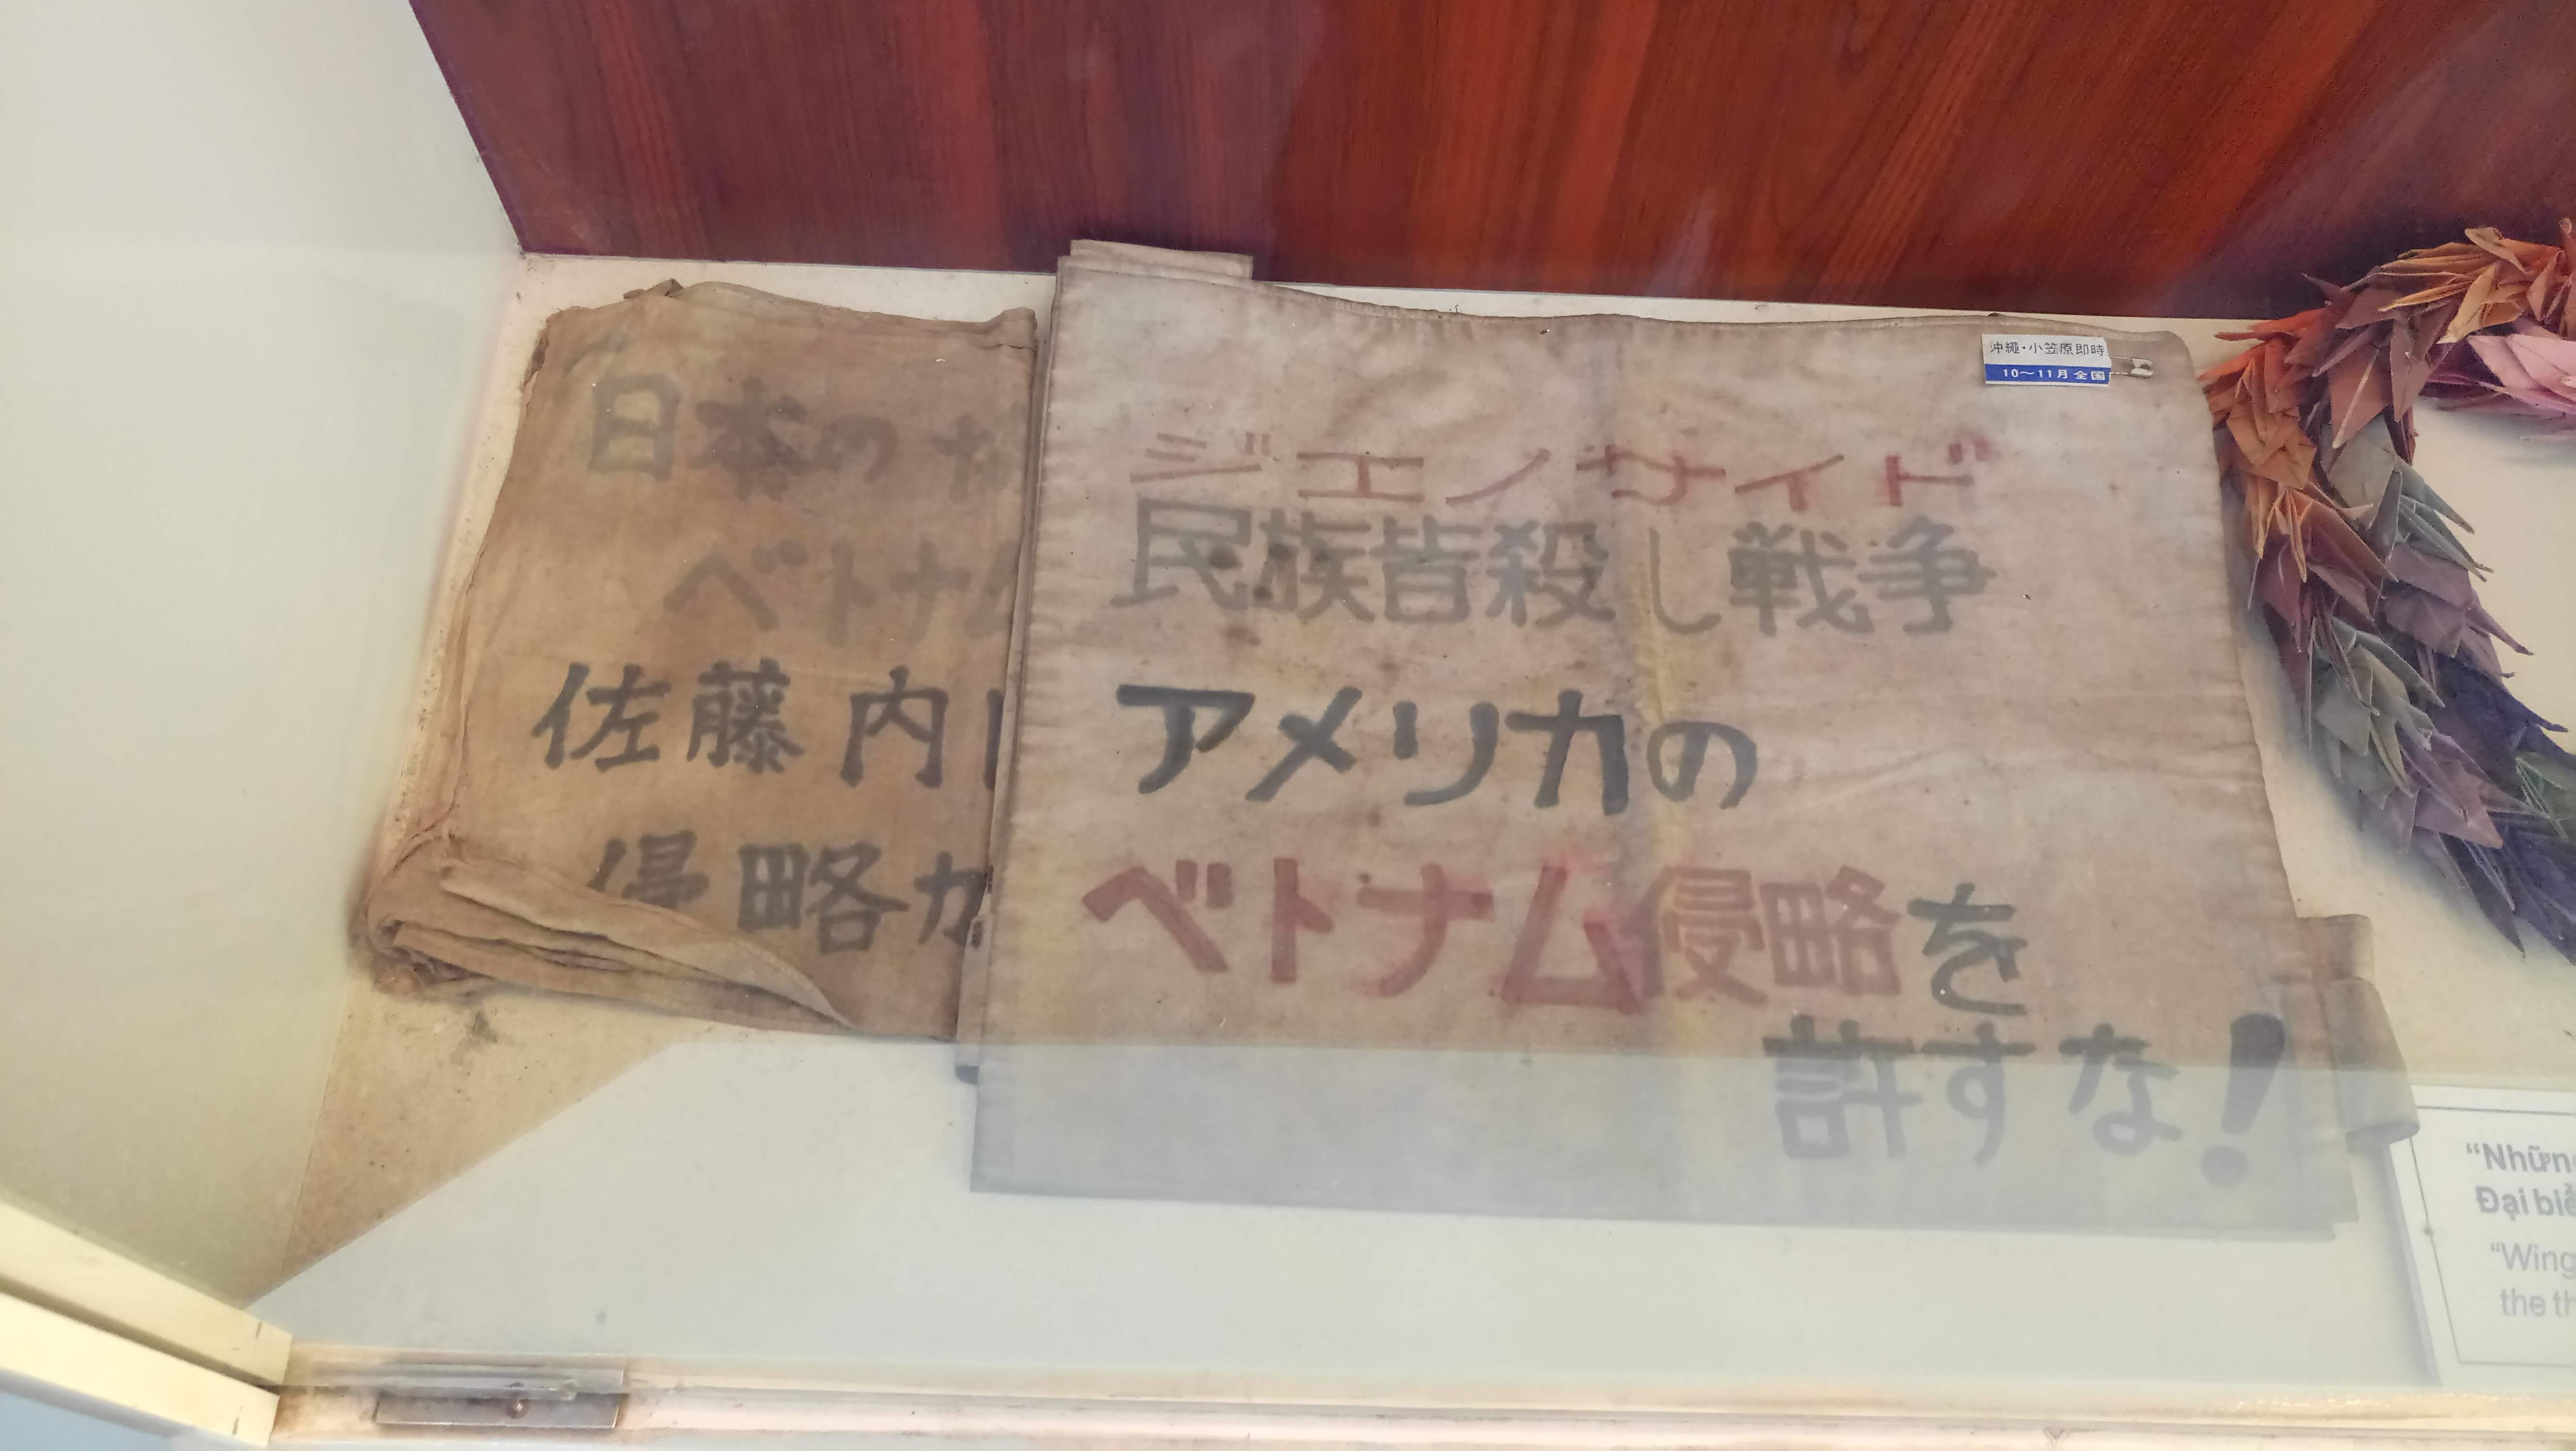 日本の
ベトナム
佐藤内
侵略
沖縄・小笠原即時
10〜11月全国
ジエノサイド
民族皆殺し戦争
アメリカの
ベトナム侵略を
許すな!
“Nhữn
Đại biể
“Wing
the th